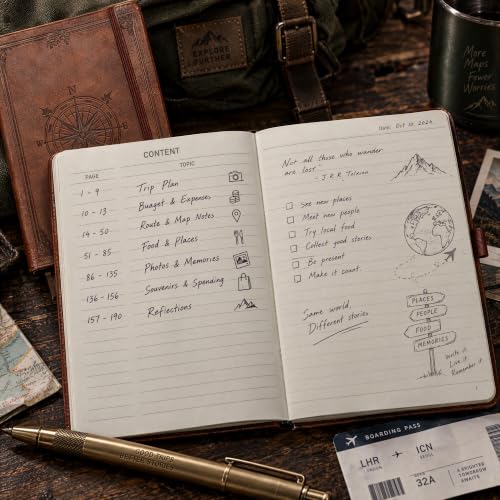 EXPLORE
FURTHER
More
Maps
Fewer
Worries.
N
E
S
W
CONTENT
PAGE TOPIC
1 - 9 Trip Plan
10 - 13 Budget & Expenses
14 - 50 Route & Map Notes
51 - 85 Food & Places
86 - 135 Photos & Memories
136 - 156 Souvenirs & Spending
157 - 190 Reflections
Date: Oct 10, 2024
Not all those who wander
are lost"
- J.R.R. Tolkien
See new places
Meet new people
Try local food
Collect good stories
Be present
Make it count.
Same world,
Different stories
PLACES
PEOPLE
FOOD
MEMORIES
Write it.
Live it.
Remember it.
GOOD TRIPS
BETTER STORIES
BOARDING PASS
LHR ICN
SEOUL
32A
A BRIGHTER
TOMORROW
AWAITS